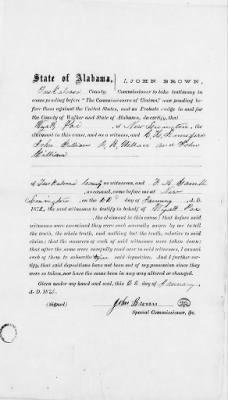 State of Alabama, I, JOHN BROWN,
Tuskaloosa County. Commissioner to take testimony in
cases pending before "The Commissioners of Claims," now pending be-
fore them against the United States, and as Probate Judge in and for
the County of Walker and State of Alabama, do certify, that
Wyatt of New Lexington, the
claimant in this cause, and as a witness, and
John William and John
William
of Tuskaloosa County as witnesses, and
as counsel, came before me at New
Lexington on the day of January A. D.
187, the said witness to testify in behalf of Wyatt
the claimant in this cause; that before said witnesses
were examined they were each severally sworn by me to tell
the truth, the whole truth, and nothing but the truth, relative to said
claim; that the answers of each of said witnesses were taken down;
that after the same were carefully read over to said witnesses, I caused
each of them to subscribe said deposition. And I further certi-
fy, that said depositions have not been out of my possession since they
were so taken, nor have the same been in any way altered or changed.
Given under my hand and seal, this day of January,
A. D. 187
(Signed) John Brown
Special Commissioner, &c.